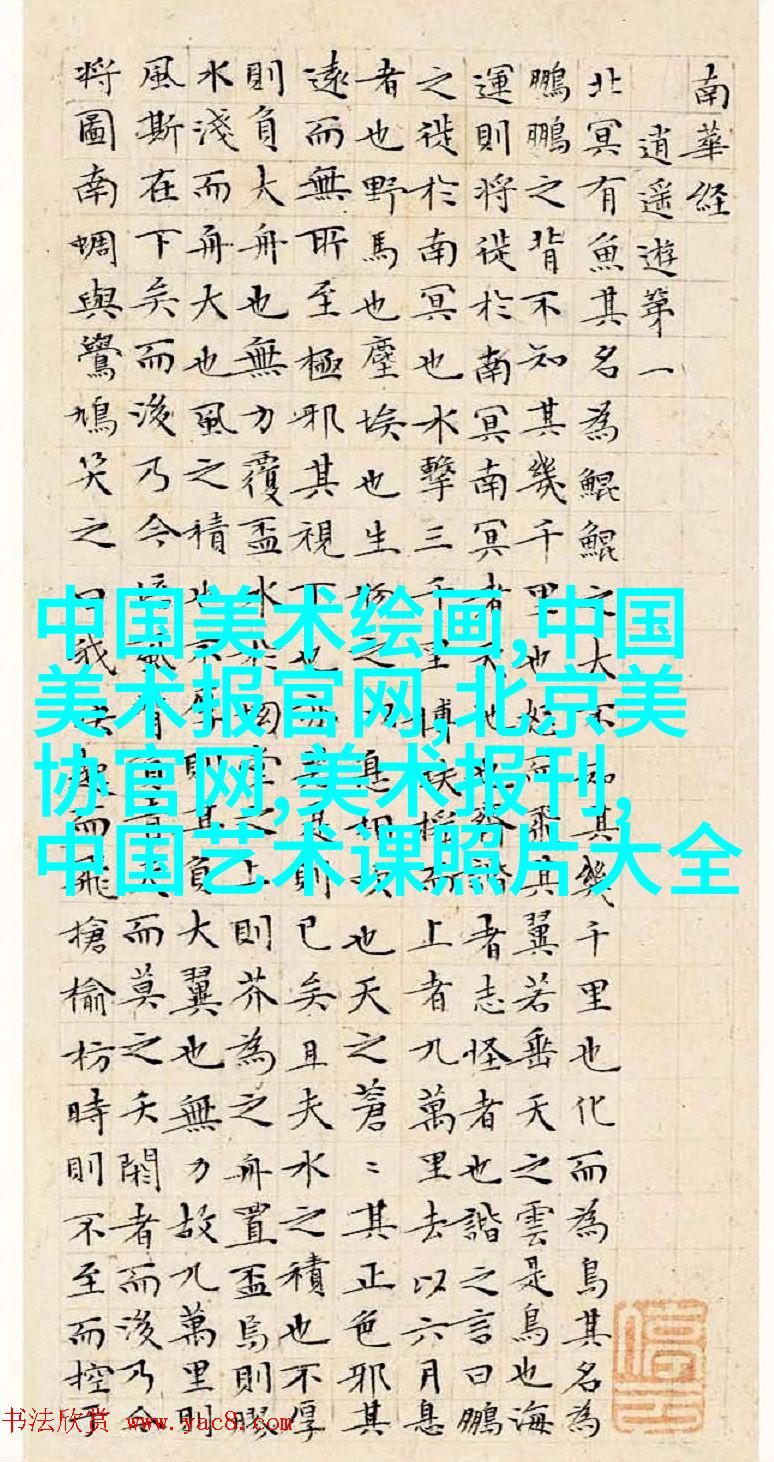 南華經
逍遥遊第一
北冥有魚其名為鯤鯤之大不知其幾千里也化而為鳥其名為
鵬鵬之背不知其幾千里也怒而飛其翼若垂天之雲是鳥也海
運則将徙於南冥南冥者天池也齊諧者志怪者也諧之言曰鵬
之徙於南冥也水擊三千里搏扶摇而上者九萬里去以六月息
者也野馬也塵埃也生物之以息相吹也天之蒼〻其正色邪其
遠而無所至極邪其視下也亦若是則已矣且夫水之積也不厚
則負大舟也無力覆盃水於坳堂之上則芥為之舟置盃焉則膠
水淺而舟大也風之積也不厚則其負大翼也無力故九萬里則
風斯在下矣而後乃今培風背負青天而莫之夭閼者而後乃今
将圖南蜩與鷽鳩笑之曰我決起而飛搶榆枋時則不至而控於
中国美术绘画,中国
美术报官网,北京美
协官网,美术报刊,
中国艺术课照片大全
书法欣赏 www.yac8.com